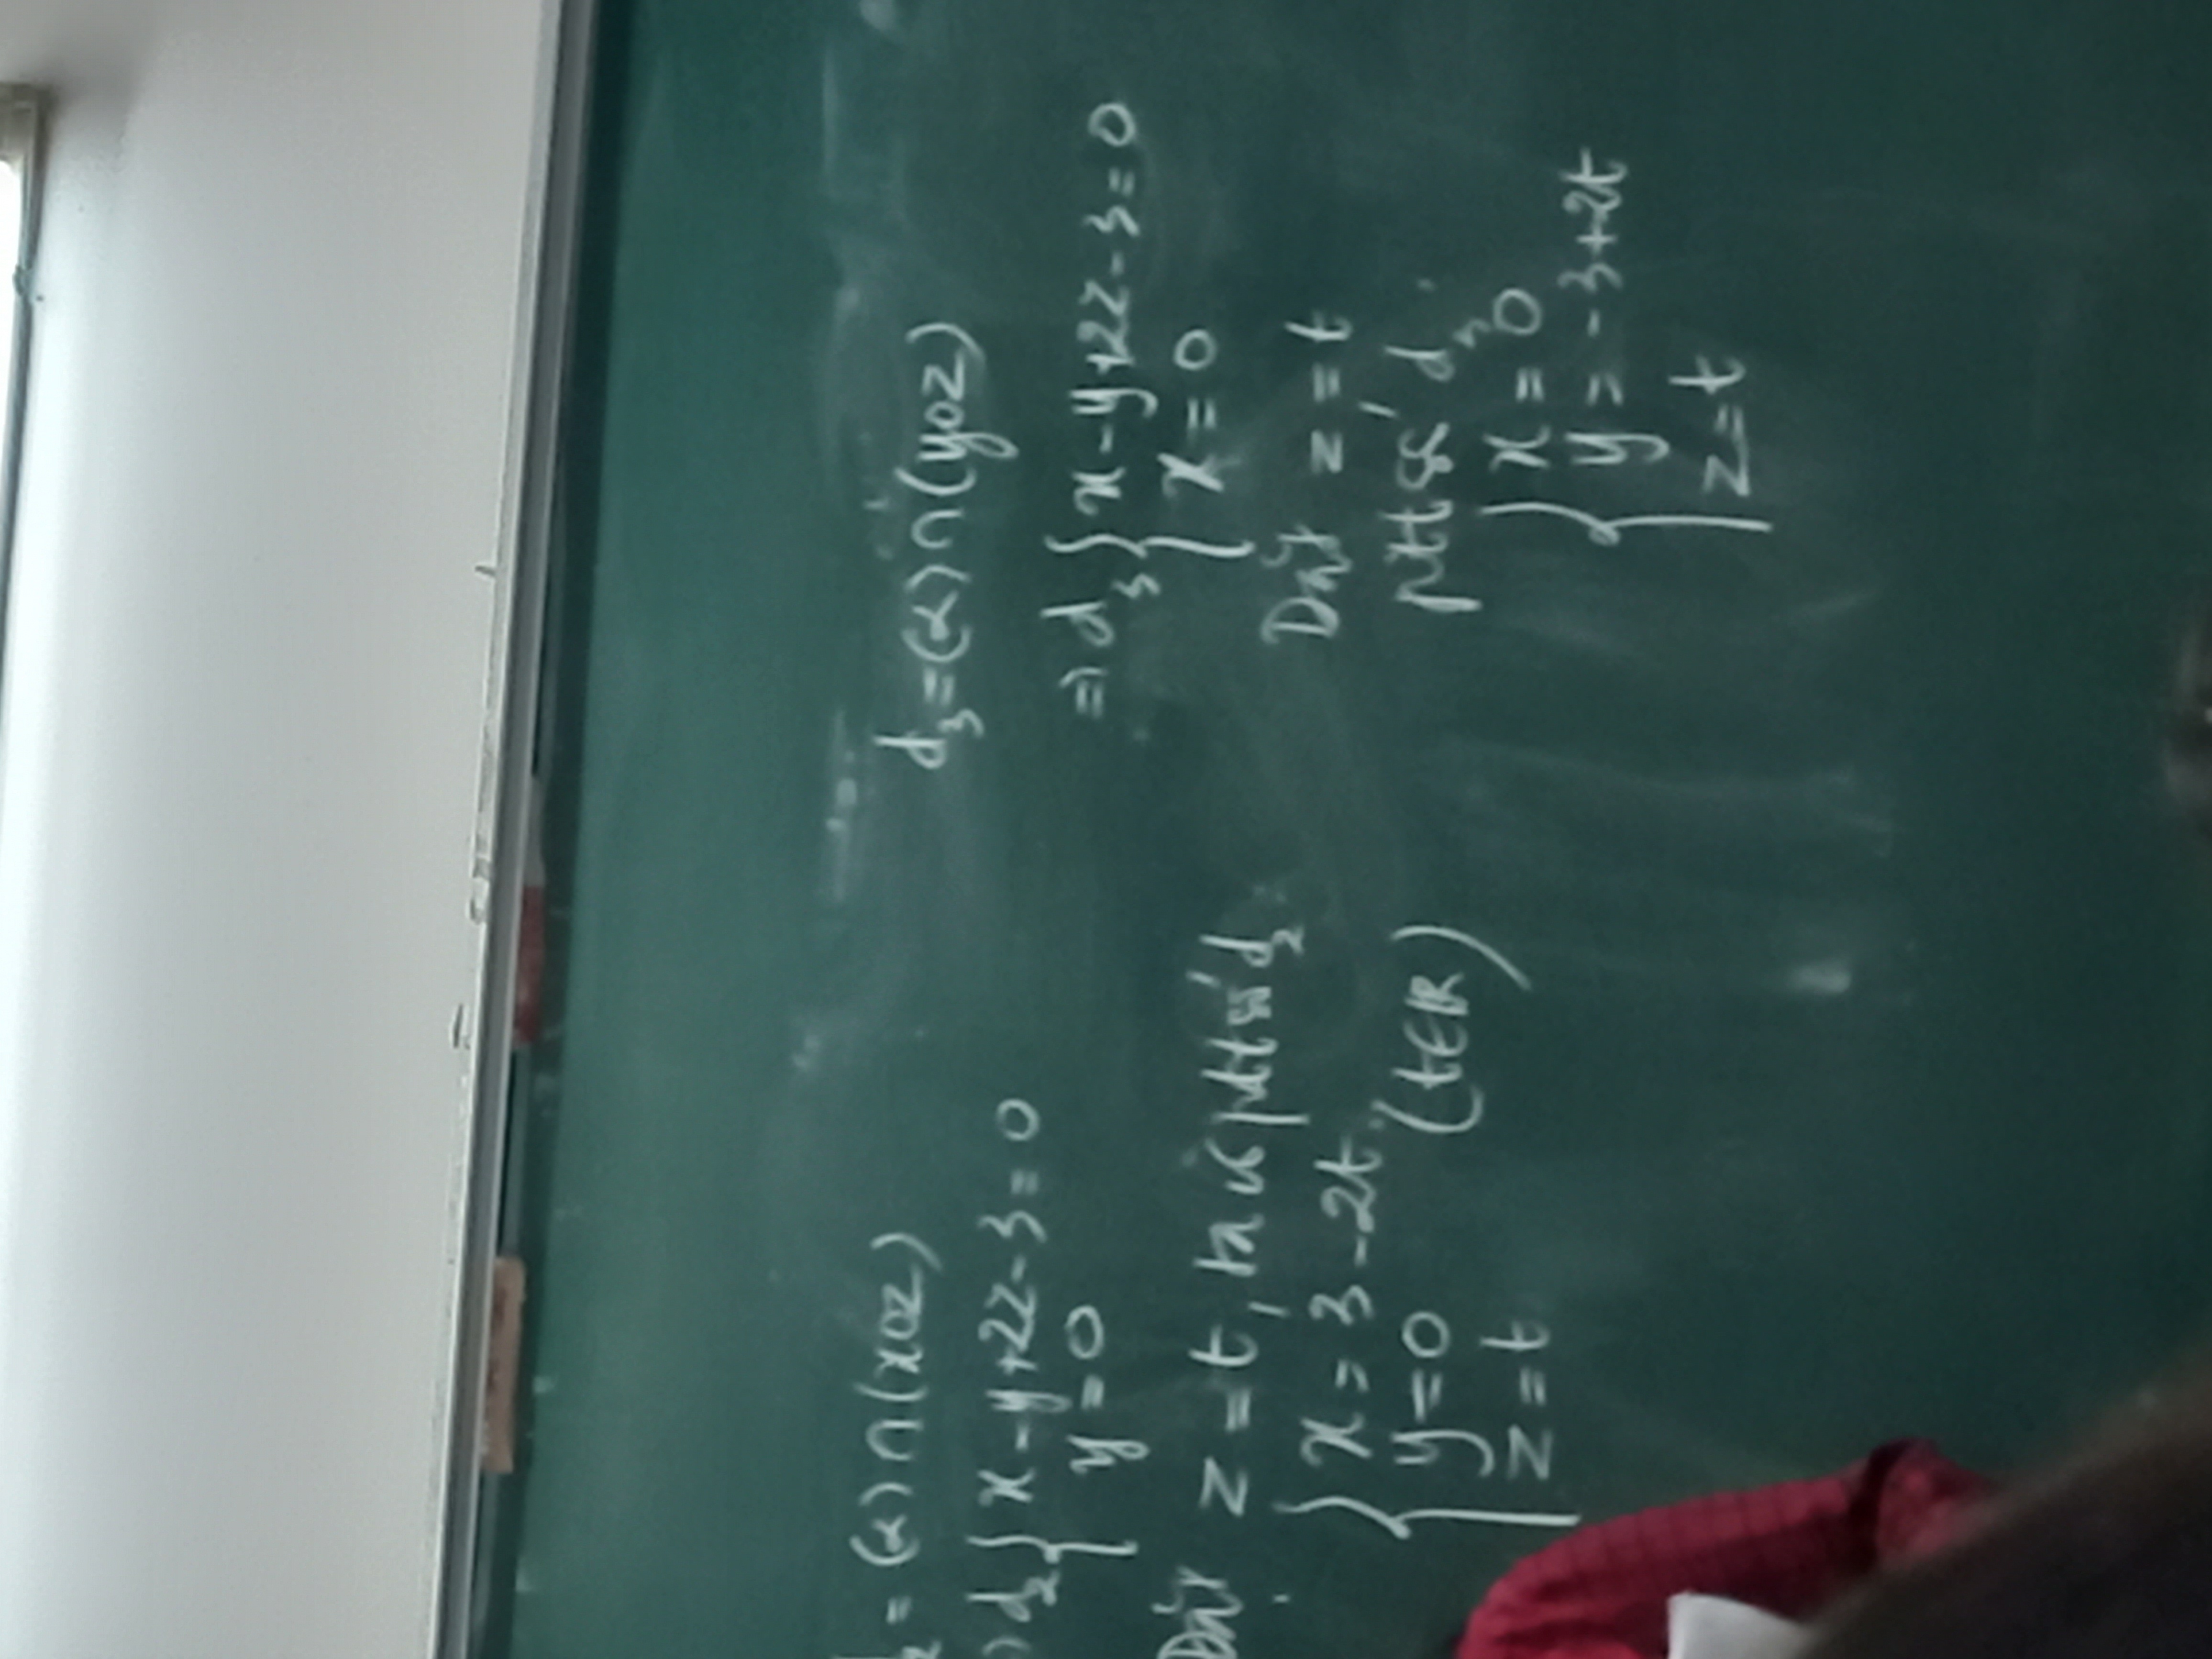 d₂ = (α) ∩ (xOz)
⇒ d₂ { x - y + 2z - 3 = 0
y = 0
Đặt z = t, ta có ptts d₂
x = 3 - 2t
y = 0 (t ∈ R)
z = t
d₃ = (α) ∩ (yOz)
⇒ d₃ { x - y + 2z - 3 = 0
x = 0
Đặt z = t
ptts d₃
x = 0
y = -3 + 2t
z = t